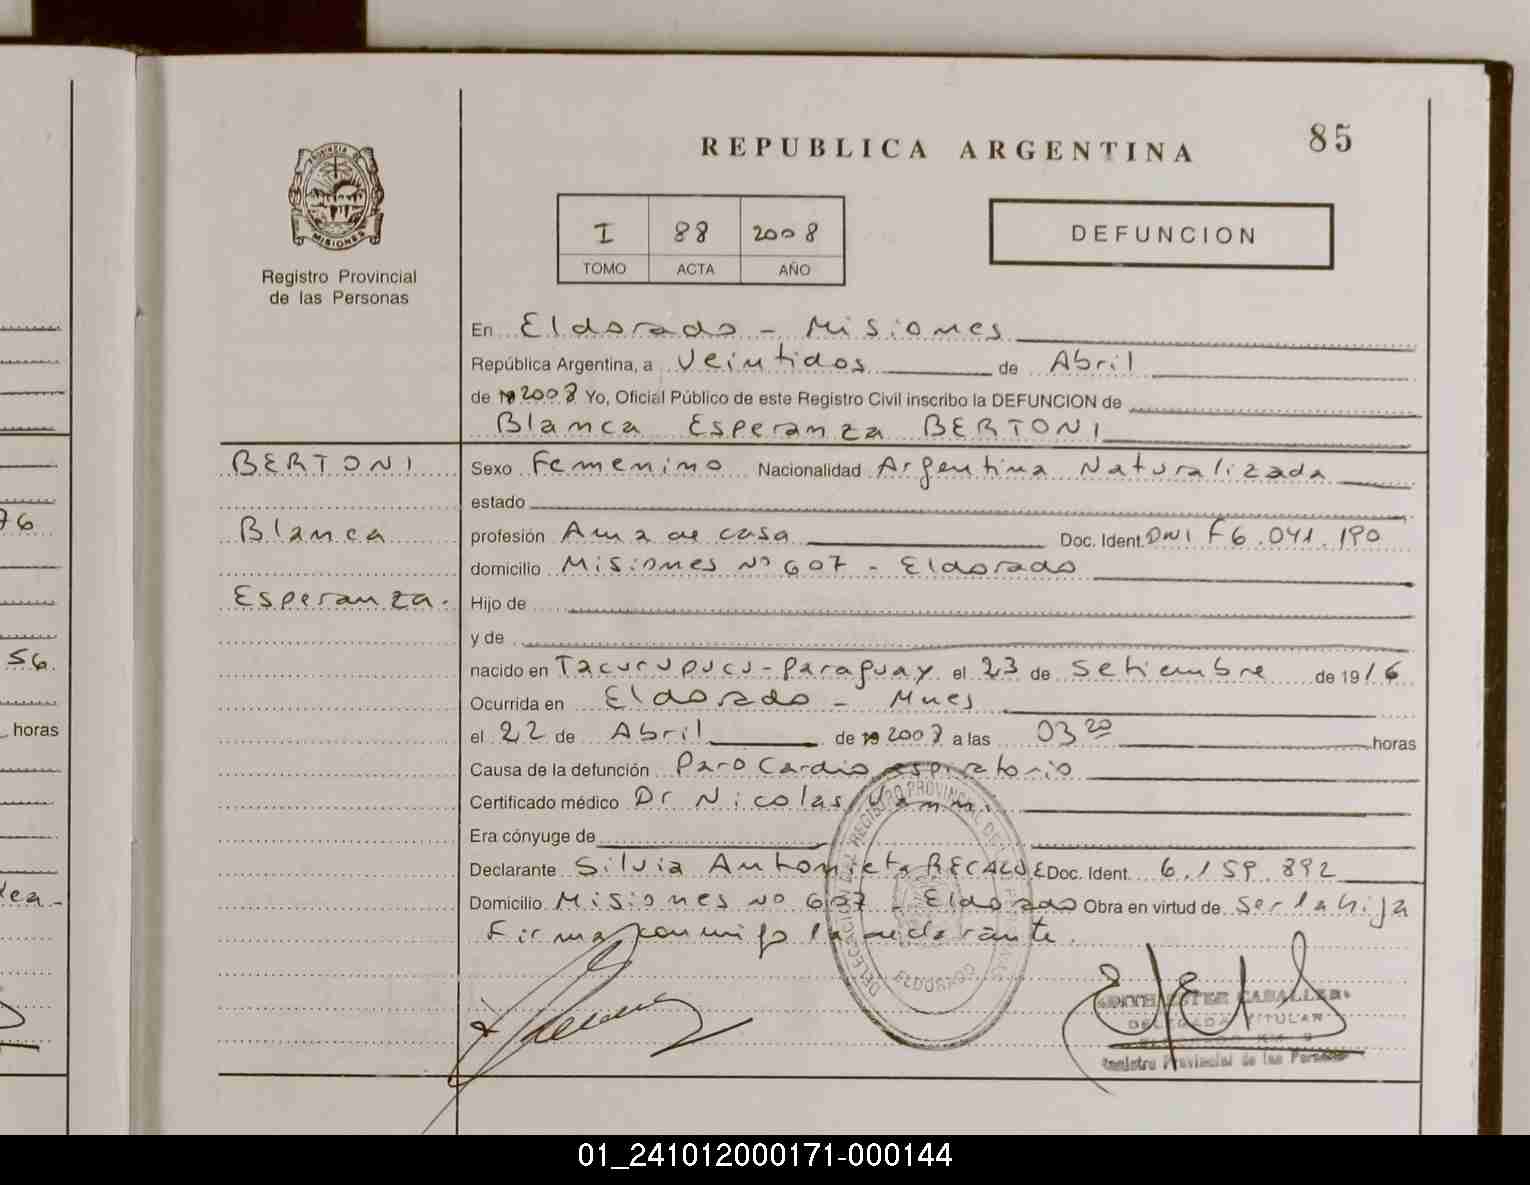 85
REPUBLICA ARGENTINA
PROVINCIA DE
MISIONES
Registro Provincial
de las Personas
I 88 2008
TOMO ACTA AÑO
DEFUNCION
En Eldorado - Misiones
República Argentina, a Veintidos de Abril
de 19 2008 Yo, Oficial Público de este Registro Civil inscribo la DEFUNCION de
Blanca Esperanza BERTONI
BERTONI
Blanca
Esperanza.
Sexo Femenino Nacionalidad Argentina Naturalizada
estado
profesión Ama de casa Doc. Ident. DNI F6.041.190
domicilio Misiones Nº 607 - Eldorado
Hijo de
y de
nacido en Tacurupucu - Paraguay el 23 de Setiembre de 1916
Ocurrida en Eldorado - Mnes
el 22 de Abril de 19 2008 a las 03 20 horas
Causa de la defunción Paro Cardiorespiratorio
Certificado médico Dr Nicolas
Era cónyuge de
Declarante Silvia Antonieta RECALDE Doc. Ident. 6.159.892
Domicilio Misiones Nº 607 - Eldorado Obra en virtud de ser la hija
Firma conmigo la declarante.
DELEGACION DEL REGISTRO PROVINCIAL DE LAS PERSONAS
ELDORADO
EDITH ESTER CABALLERO
DELEGADA TITULAR
Registro Provincial de las Personas
76
56.
horas
01_241012000171-000144